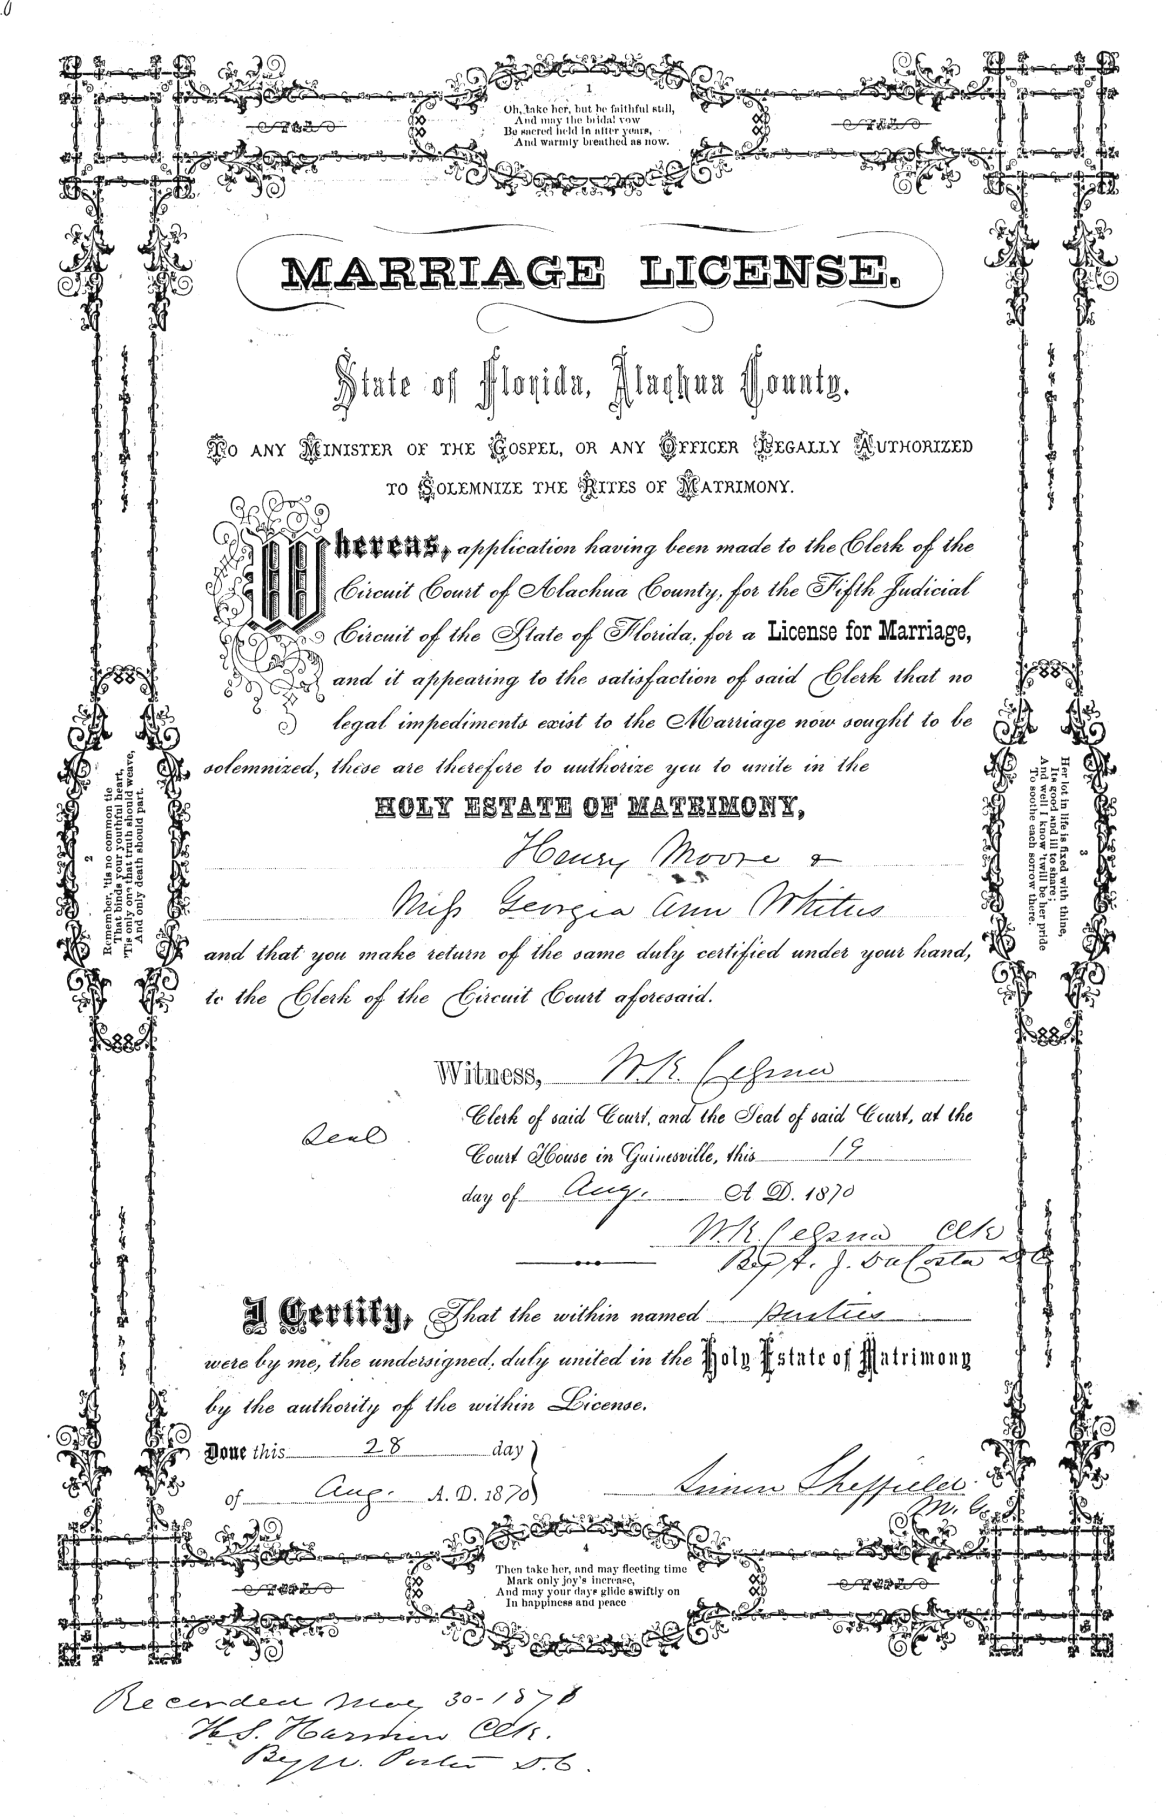 1
Oh, take her, but be faithful still,
And may the bridal vow
Be sacred held in after years,
And warmly breathed as now.
MARRIAGE LICENSE.
State of Florida, Alachua County.
TO ANY MINISTER OF THE GOSPEL, OR ANY OFFICER LEGALLY AUTHORIZED
TO SOLEMNIZE THE RITES OF MATRIMONY.
Whereas, application having been made to the Clerk of the
Circuit Court of Alachua County, for the Fifth Judicial
Circuit of the State of Florida, for a License for Marriage,
and it appearing to the satisfaction of said Clerk that no
legal impediments exist to the Marriage now sought to be
solemnized, these are therefore to authorize you to unite in the
HOLY ESTATE OF MATRIMONY,
Henry Moore &
Miss Georgia Ann Whitus
and that you make return of the same duly certified under your hand,
to the Clerk of the Circuit Court aforesaid.
2
Remember, 'tis no common tie
That binds your youthful heart,
'Tis only one that truth should weave,
And only death should part.
3
Her lot in life is fixed with thine,
Its good and ill to share;
And well I know 'twill be her pride
To soothe each sorrow there.
Witness, W. K. Cessna
Clerk of said Court, and the Seal of said Court, at the
Seal
Court House in Gainesville, this 19
day of Aug. A D. 1870
W. K. Cessna Clk
By A. J. DaCosta D C
I Certify, That the within named parties
were by me, the undersigned, duly united in the Holy Estate of Matrimony
by the authority of the within License.
Done this 28 day
of Aug. A. D. 1870
Simon Sheffield
M. G.
4
Then take her, and may fleeting time
Mark only joy's increase,
And may your days glide swiftly on
In happiness and peace
Recorded May 30-1878
H. S. Harmon Clk.
By W. Porter D. C.